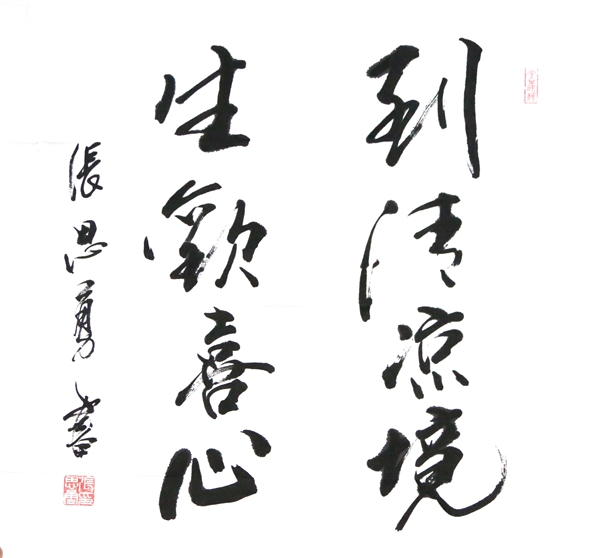 到清凉境
生歡喜心
張思勇書